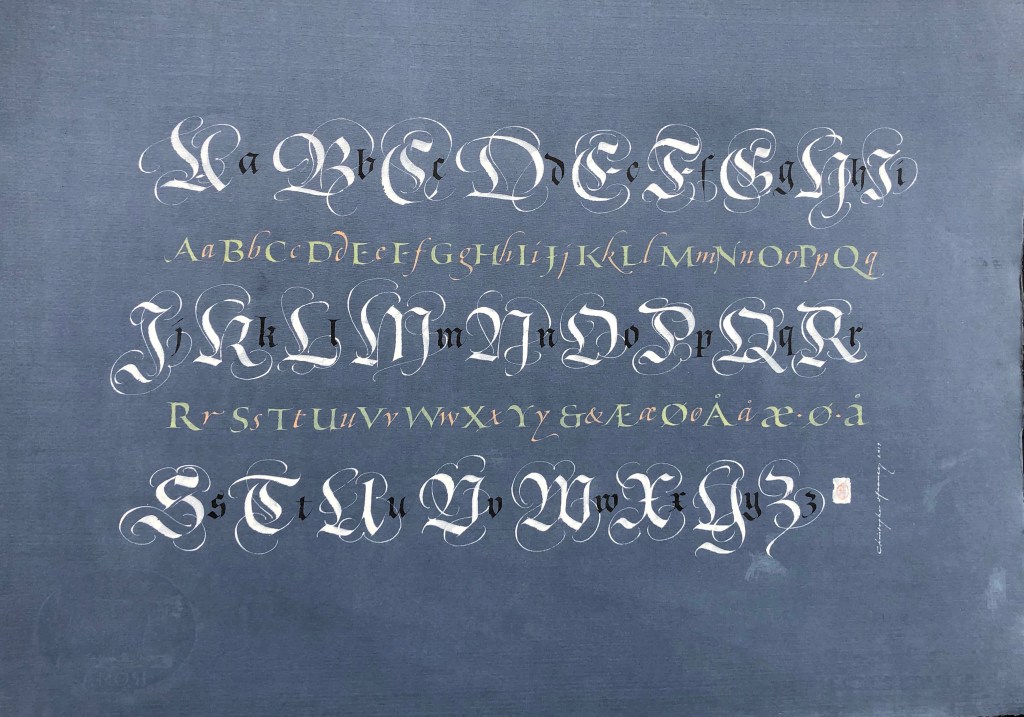 A a B b C c D d E e F f G g H h I i
A a B b C c D d E e F f G g H h I i J j K k L l M m N n O o P p Q q
J j K k L l M m N n O o P p Q q R r
R r S s T t U u V v W w X x Y y & & Æ æ Ø ø Å å æ · ø · å
S s T t U u V v W w X x Y y Z z